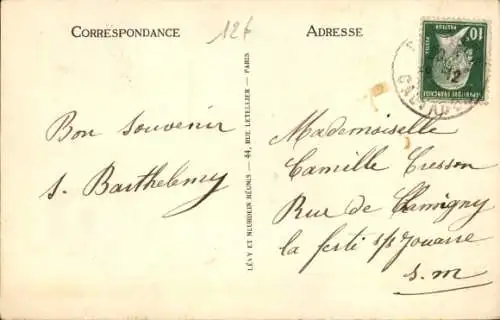 CORRESPONDANCE
12f
ADRESSE
Bon Souvenir
S. Barthelemy
LÉVY ET NEURDEIN RÉUNIS - 44, RUE LETELLIER - PARIS
Mademoiselle
Camille Cresson
Rue de
la ferté s/s Jouarre
S. M
10c
POSTES
PASTEUR
RÉPUBLIQUE FRANÇAISE
CALVADOS